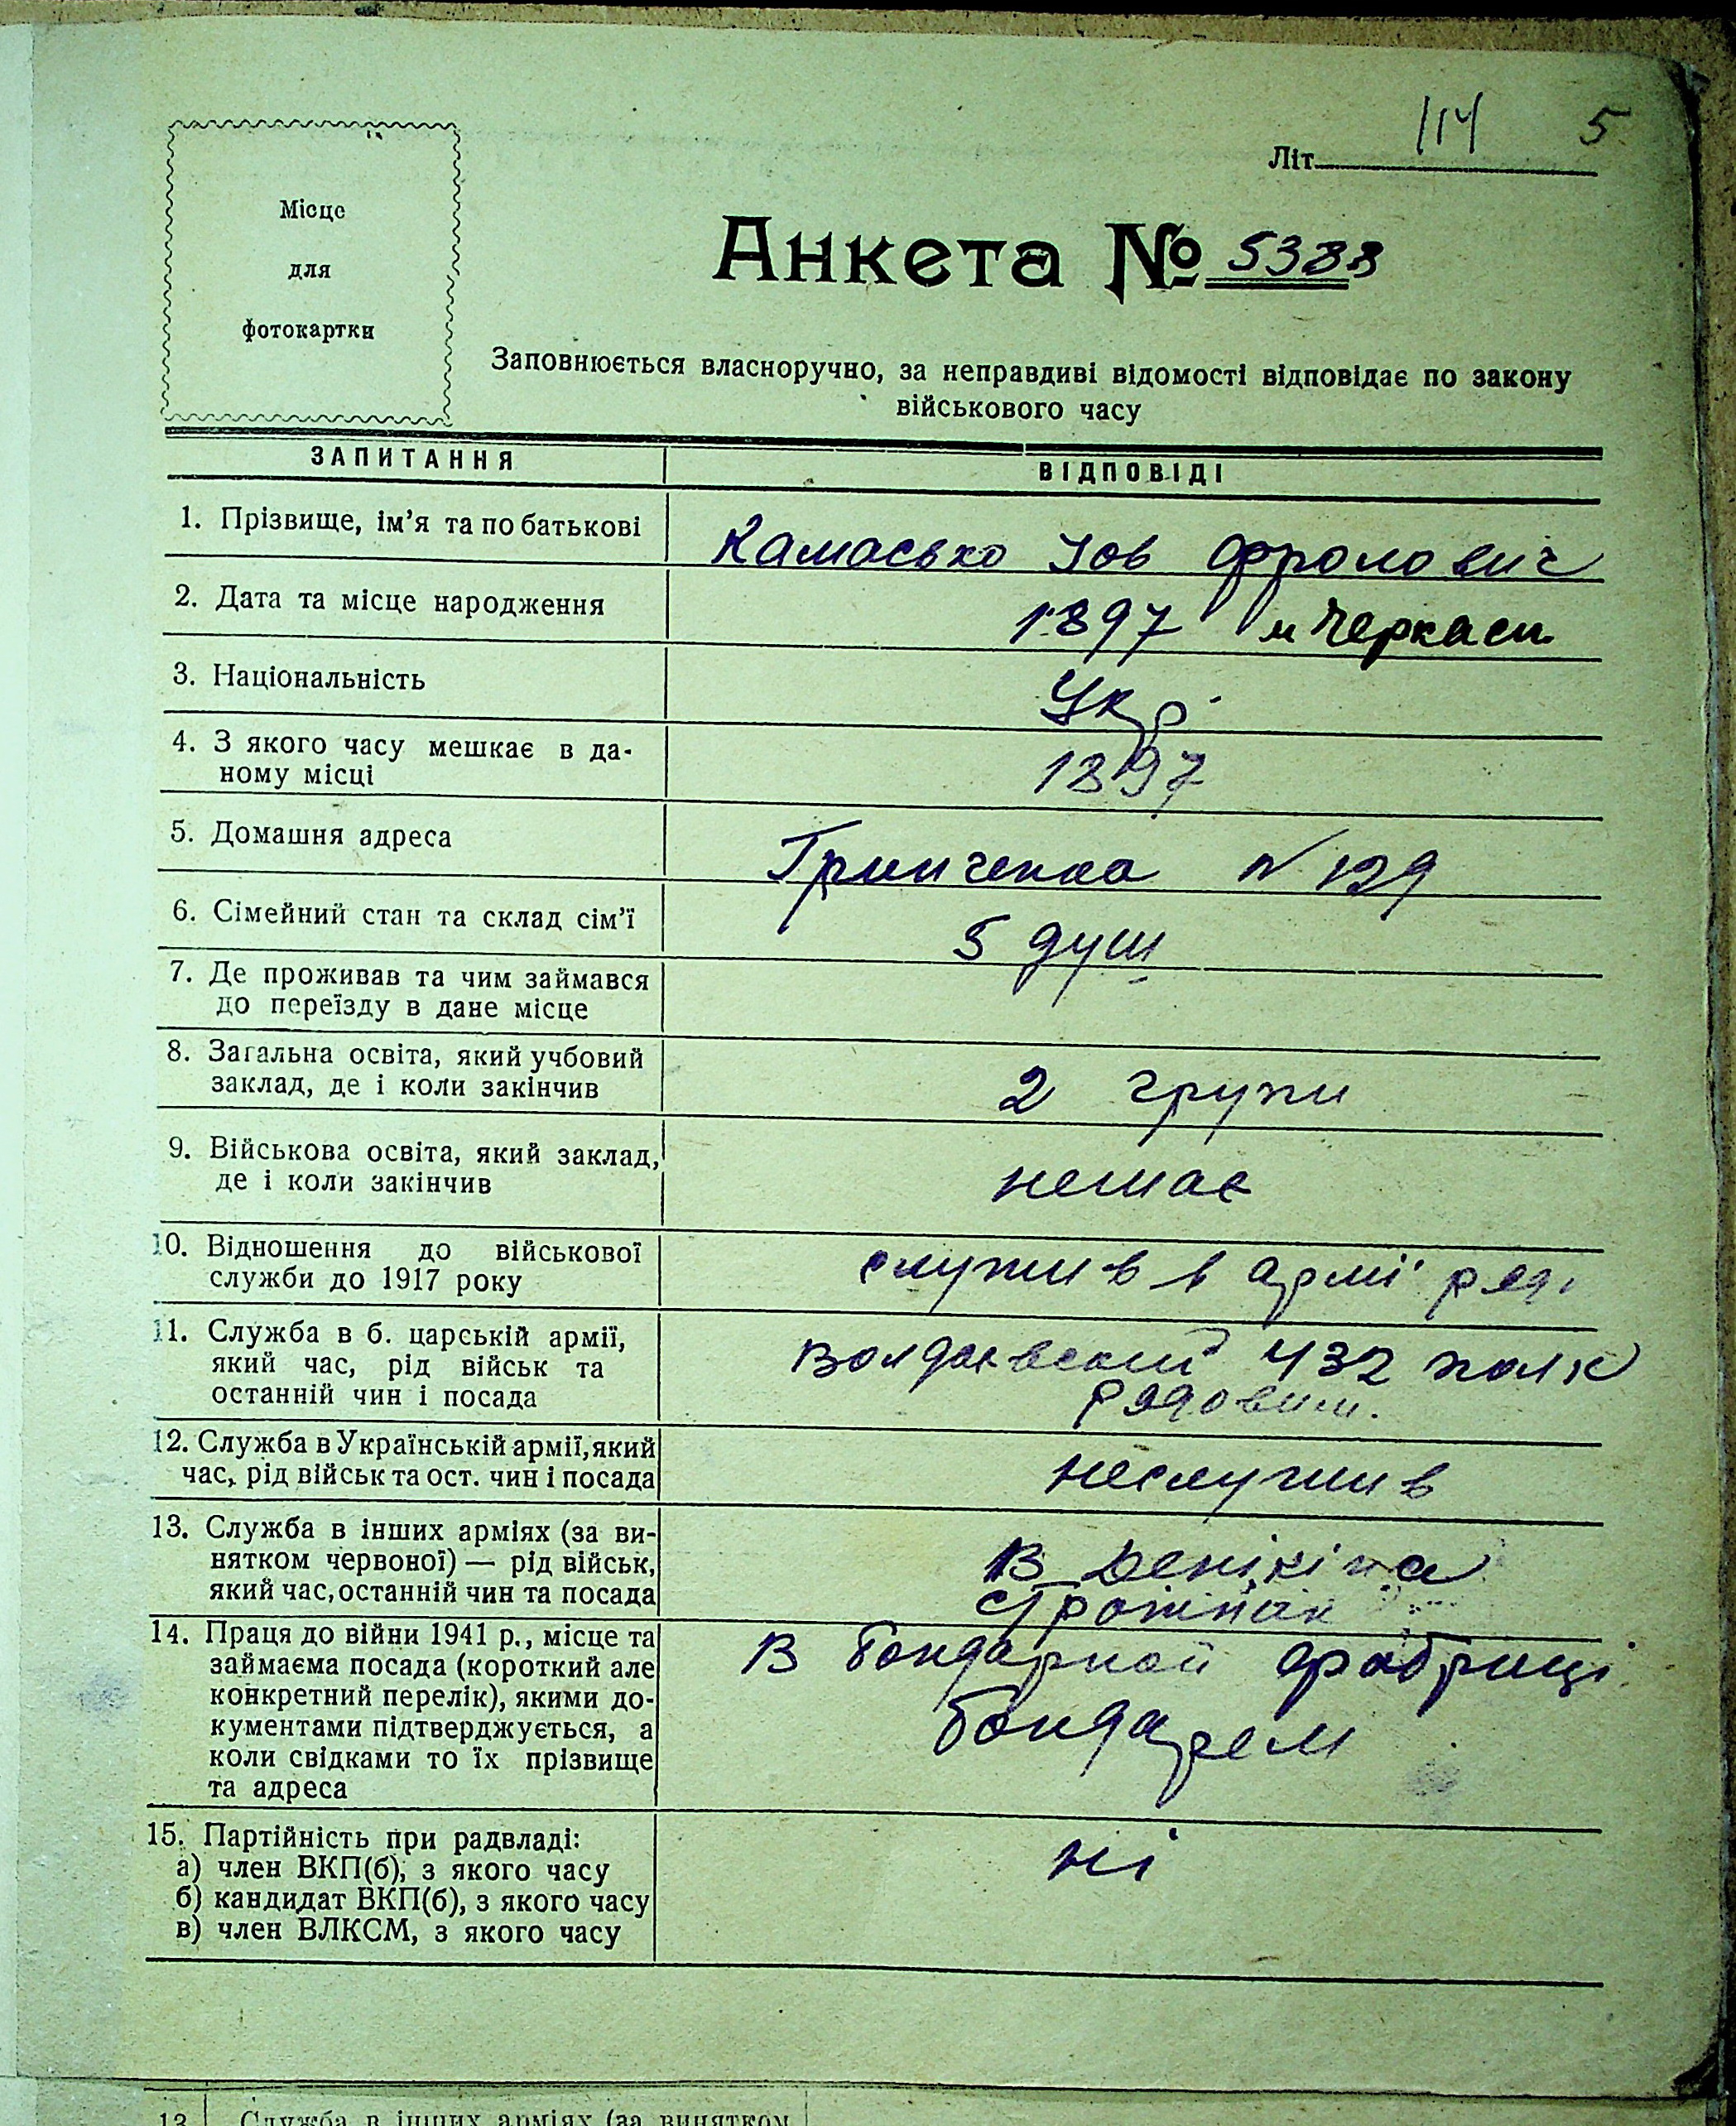 114 5
Літ.
Місце
для
фотокартки
Анкета № 5388
Заповнюється власноручно, за неправдиві відомості відповідає по закону
військового часу
ЗАПИТАННЯ
ВІДПОВІДІ
1. Прізвище, ім'я та по батькові
Камасько Іов Фролович
2. Дата та місце народження
1897 м Черкаси
3. Національність
Укр.
4. З якого часу мешкає в да-
ному місці
1897
5. Домашня адреса
Грінченка № 129
6. Сімейний стан та склад сім'ї
5 душ
7. Де проживав та чим займався
до переїзду в дане місце
8. Загальна освіта, який учбовий
заклад, де і коли закінчив
2 групи
9. Військова освіта, який заклад,
де і коли закінчив
немає
10. Відношення до військової
служби до 1917 року
служив в армі ряд.
11. Служба в б. царській армії,
який час, рід військ та
останній чин і посада
432 полк
рядовим.
12. Служба в Українській армії, який
час, рід військ та ост. чин і посада
неслужив
13. Служба в інших арміях (за ви-
нятком червоної) — рід військ,
який час, останній чин та посада
В Денікіна
14. Праця до війни 1941 р., місце та
займаєма посада (короткий але
конкретний перелік), якими до-
кументами підтверджується, а
коли свідками то їх прізвище
та адреса
В бондарной фабриці
бондарем
15. Партійність при радвладі:
а) член ВКП(б), з якого часу
б) кандидат ВКП(б), з якого часу
в) член ВЛКСМ, з якого часу
ні
13 Служба в інших арміях (за винятком